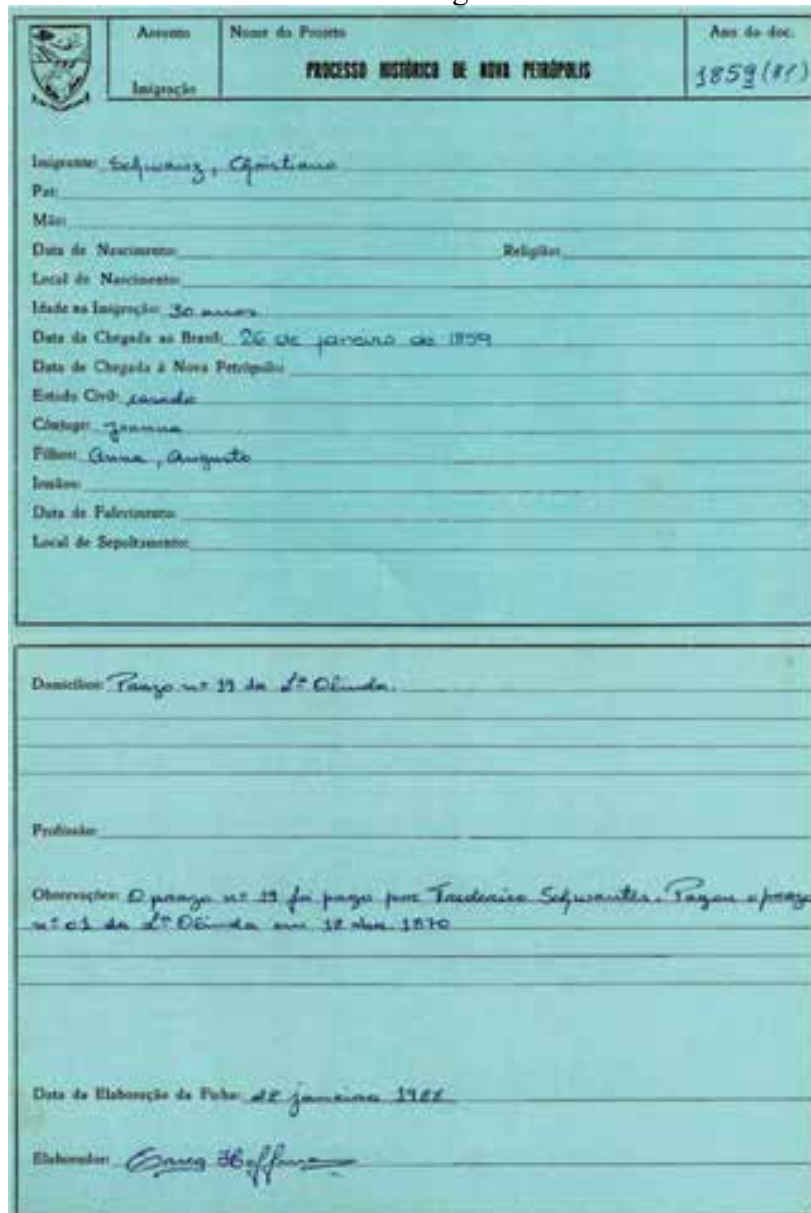 Assunto
Imigração
Nome do Projeto
PROCESSO HISTÓRICO DE NOVA PETRÓPOLIS
Ano do doc.
1859
Imigrante: Schwanz, Christiano
Pai:
Mãe:
Data de Nascimento: Religião:
Local de Nascimento:
Idade na Imigração: 30 anos
Data da Chegada ao Brasil: 26 de janeiro de 1859
Data de Chegada à Nova Petrópolis:
Estado Civil: casado
Cônjuge: Joanna
Filhos: Anna, Augusto
Irmãos:
Data de Falecimento:
Local de Sepultamento:
Domicílios: Prazo nº 19 da Lª Olinda.
Profissão:
Observações: O prazo nº 19 foi pago por Frederico Schwantes. Pagou o prazo
nº 01 da Lª Olinda em 18 1870
Data da Elaboração da Ficha: janeiro
Elaborador: